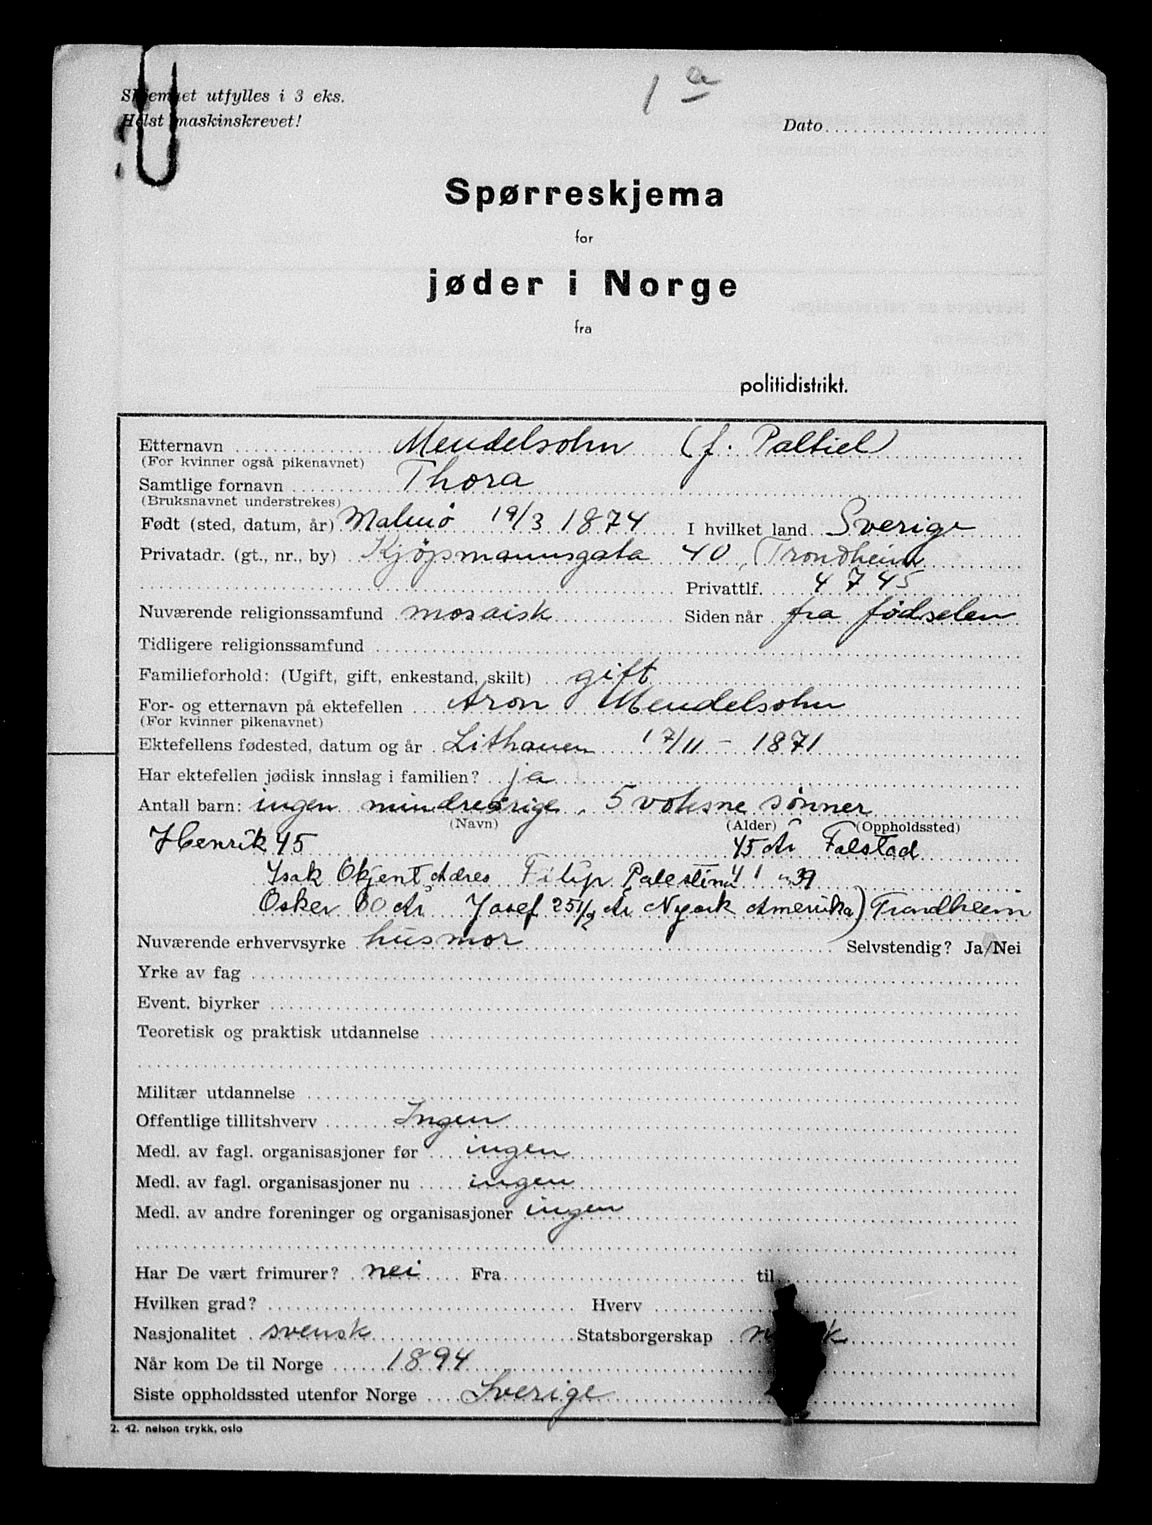 Skjemaet utfylles i 3 eks.
Helst maskinskrevet!
1 a
Dato
Spørreskjema
for
jøder i Norge
fra
politidistrikt.
Etternavn Mendelsohn (f. Paltiel)
(For kvinner også pikenavnet)
Samtlige fornavn Thora
(Bruksnavnet understrekes)
Født (sted, datum, år) Malmö 19/3 1874 I hvilket land Sverige
Privatadr. (gt., nr., by) Kjøpmannsgata 40, Trondheim
Privattlf. 4745
Nuværende religionssamfund mosaisk Siden når fra fødselen
Tidligere religionssamfund
Familieforhold: (Ugift, gift, enkestand, skilt) gift
For- og etternavn på ektefellen Aron Mendelsohn
(For kvinner pikenavnet)
Ektefellens fødested, datum og år Lithauen 17/11 - 1871
Har ektefellen jødisk innslag i familien? ja
Antall barn: ingen mindreårige. 5 voksne sønner
(Navn) (Alder) (Oppholdssted)
Henrik 45 45 År Falstad
Isak Okjent Adres Filip Palestina 41 " 39
Osker 60 År Josef 25 1/2 År Nyork Amerika) Trondheim
Nuværende erhvervsyrke husmor Selvstendig? Ja/Nei
Yrke av fag
Event. biyrker
Teoretisk og praktisk utdannelse
Militær utdannelse
Offentlige tillitshverv Ingen
Medl. av fagl. organisasjoner før ingen
Medl. av fagl. organisasjoner nu ingen
Medl. av andre foreninger og organisasjoner ingen
Har De vært frimurer? nei Fra til
Hvilken grad? Hverv
Nasjonalitet svensk Statsborgerskap
Når kom De til Norge 1894
Siste oppholdssted utenfor Norge Sverige
2. 42. nelson trykk, oslo